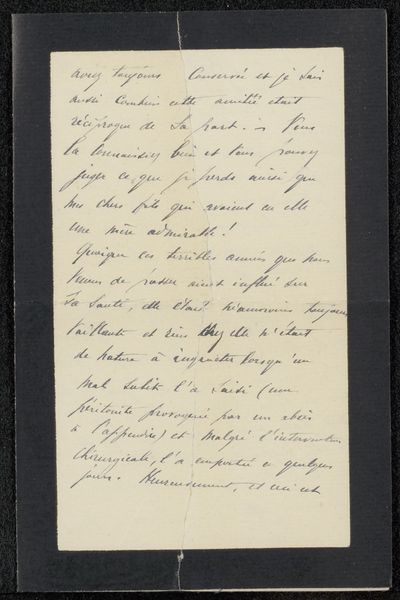 avez toujours conservée et je sais
aussi combien cette amitié était
réciproque de sa part. Vous
la connaissiez bien et vous pouvez
juger ce que je perds ainsi que
mes chers fils qui avaient en elle
une mère admirable !
Quoique ces terribles années que nous
venons de passer aient influé sur
sa santé, elle était néanmoins toujours
vaillante et rien chez elle n'était
de nature à inquiéter lorsqu'un
mal subit l'a saisi (une
péritonite provoquée par un abcès
à l'appendice) et malgré l'intervention
chirurgicale, l'a emportée en quelques
jours. Heureusement, et ceci est